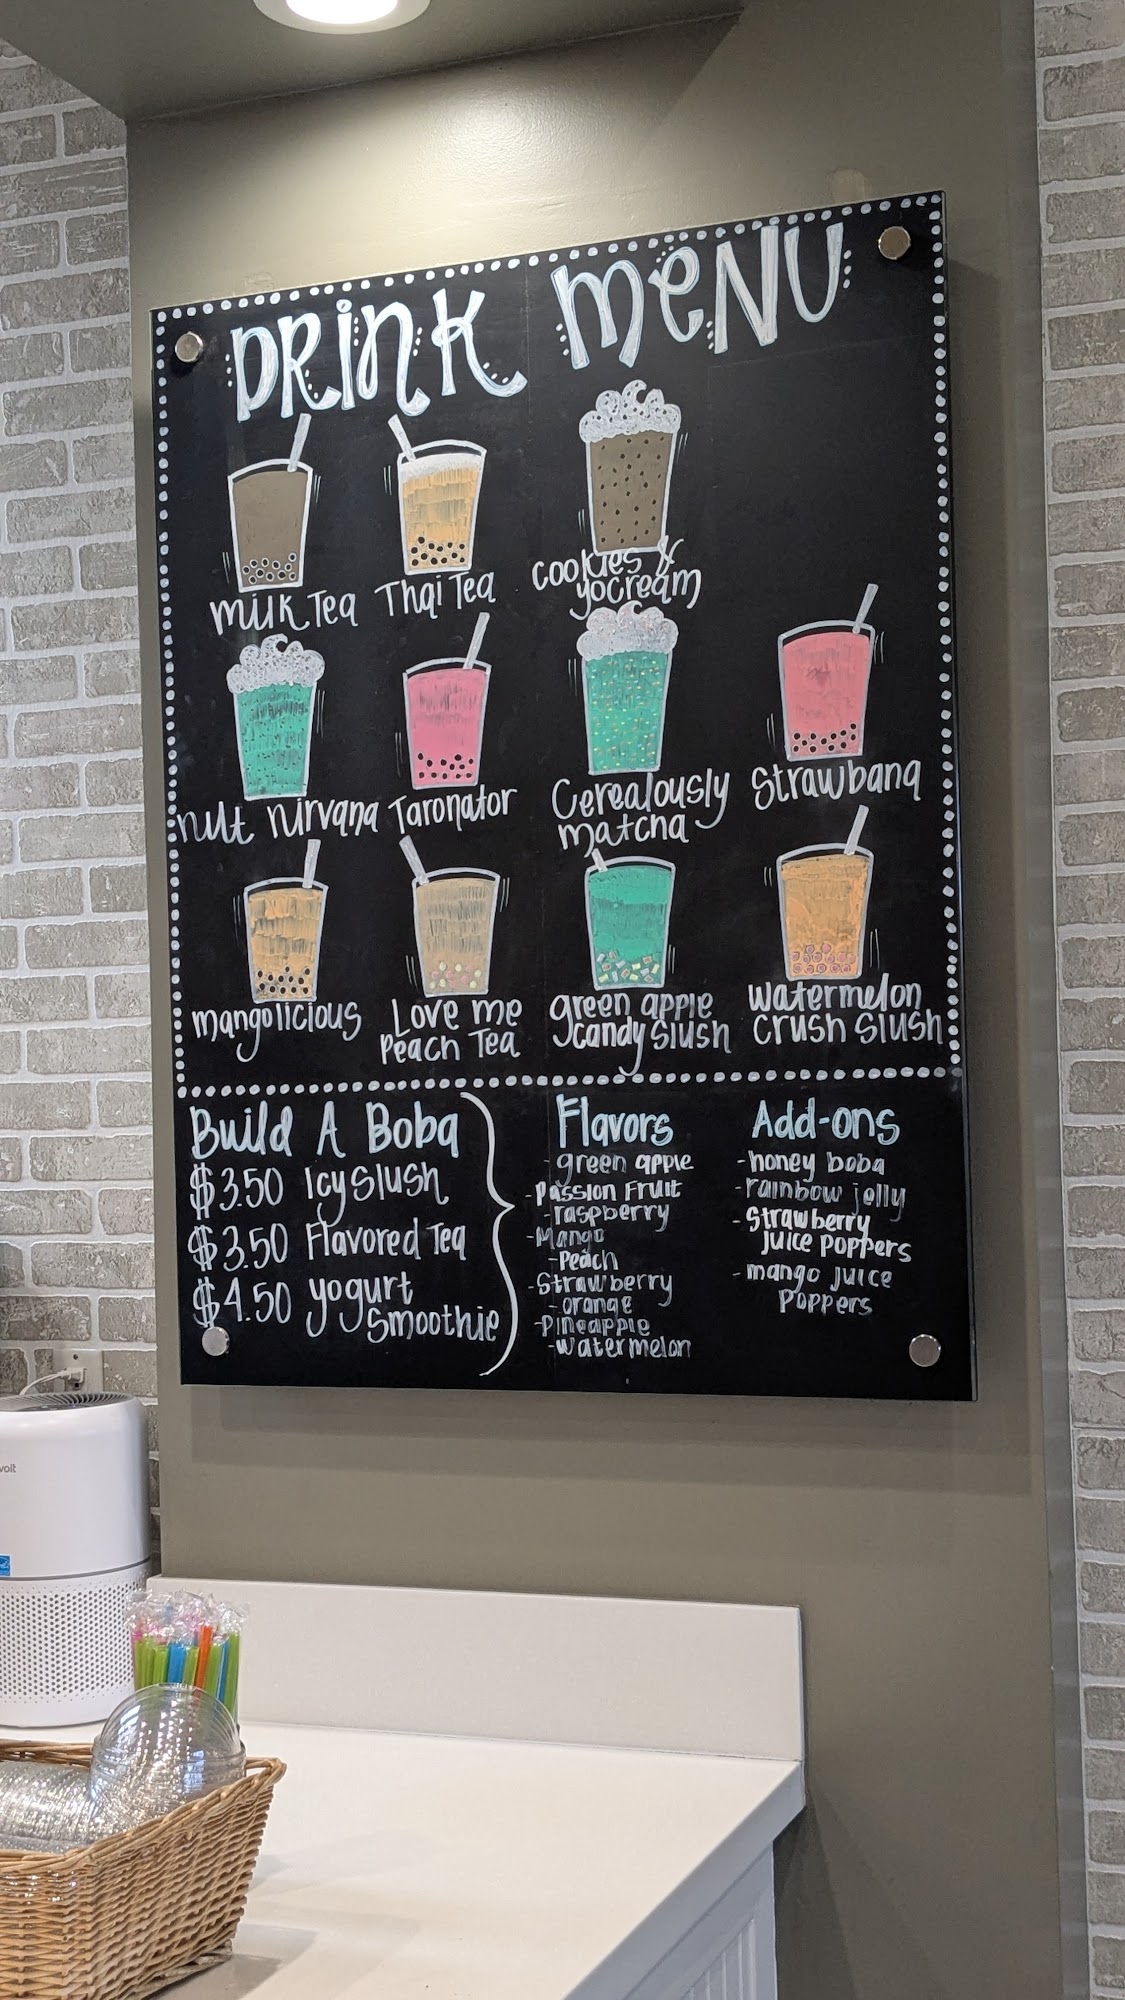 DRINK MENU
milk Tea
Thai Tea
cookies &
yocream
nut nirvana
Taronator
Cerealously
matcha
Strawbana
mangolicious
Love me
Peach Tea
green apple
candy slush
watermelon
crush slush
Build A Boba
$3.50 Icy slush
$3.50 Flavored Tea
$4.50 yogurt
Smoothie
Flavors
- green apple
- Passion Fruit
- raspberry
- Mango
- Peach
- Strawberry
- orange
- Pineapple
- watermelon
Add-ons
- honey boba
- rainbow jelly
- Strawberry
juice poppers
- mango juice
Poppers
voit